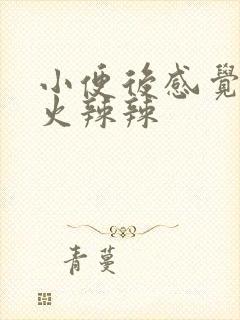 小便後感覺
火辣辣
青蔓